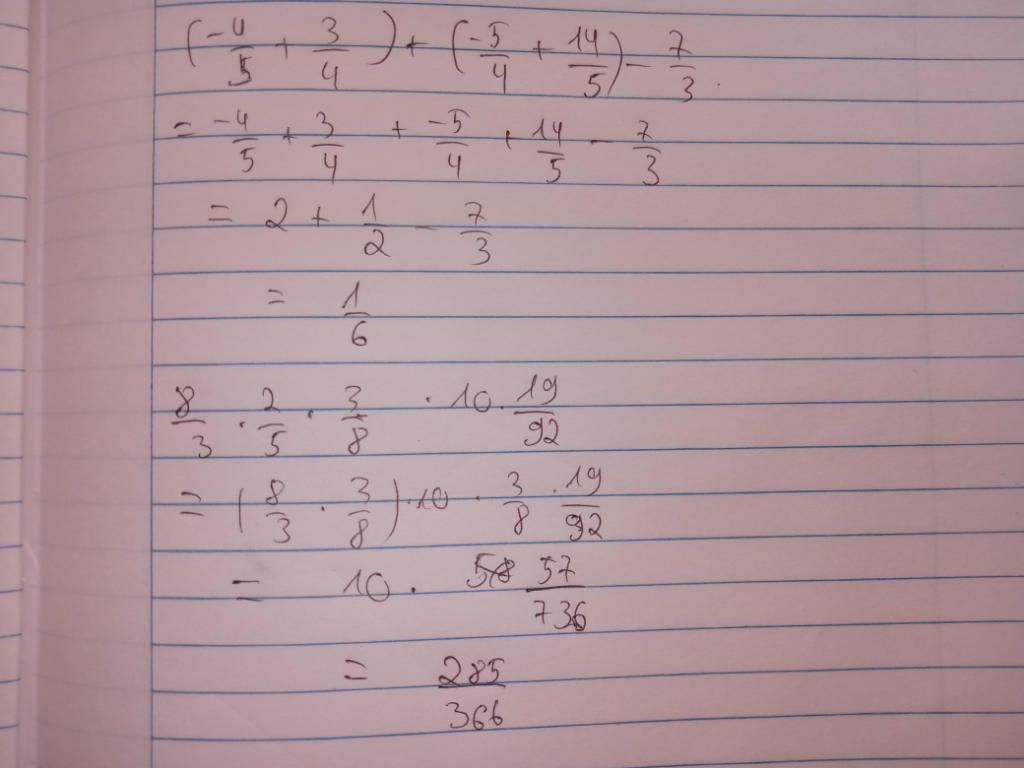 (-4/5 + 3/4) + (-5/4 + 14/5) - 7/3.
= -4/5 + 3/4 + -5/4 + 14/5 - 7/3
= 2 + 1/2 - 7/3
= 1/6
8/3 · 2/5 · 3/8 · 10 · 19/92
= (8/3 · 3/8) · 10 · 3/8 · 19/92
= 10 · 57/736
= 285/366